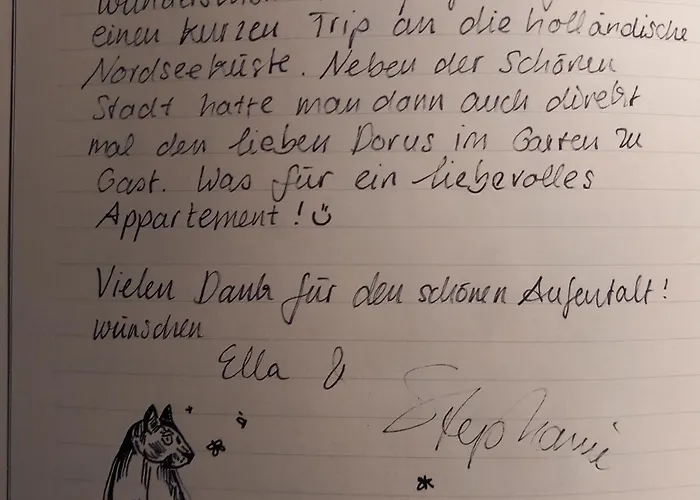 einen kurzen Trip an die holländische
Nordseeküste. Neben der Schönen
Stadt hatte man dann auch direkt
mal den lieben Dorus im Garten zu
Gast. Was für ein liebevolles
Appartement! ☺
Vielen Dank für den schönen Aufentalt!
wünschen
Ella &
Stephanie